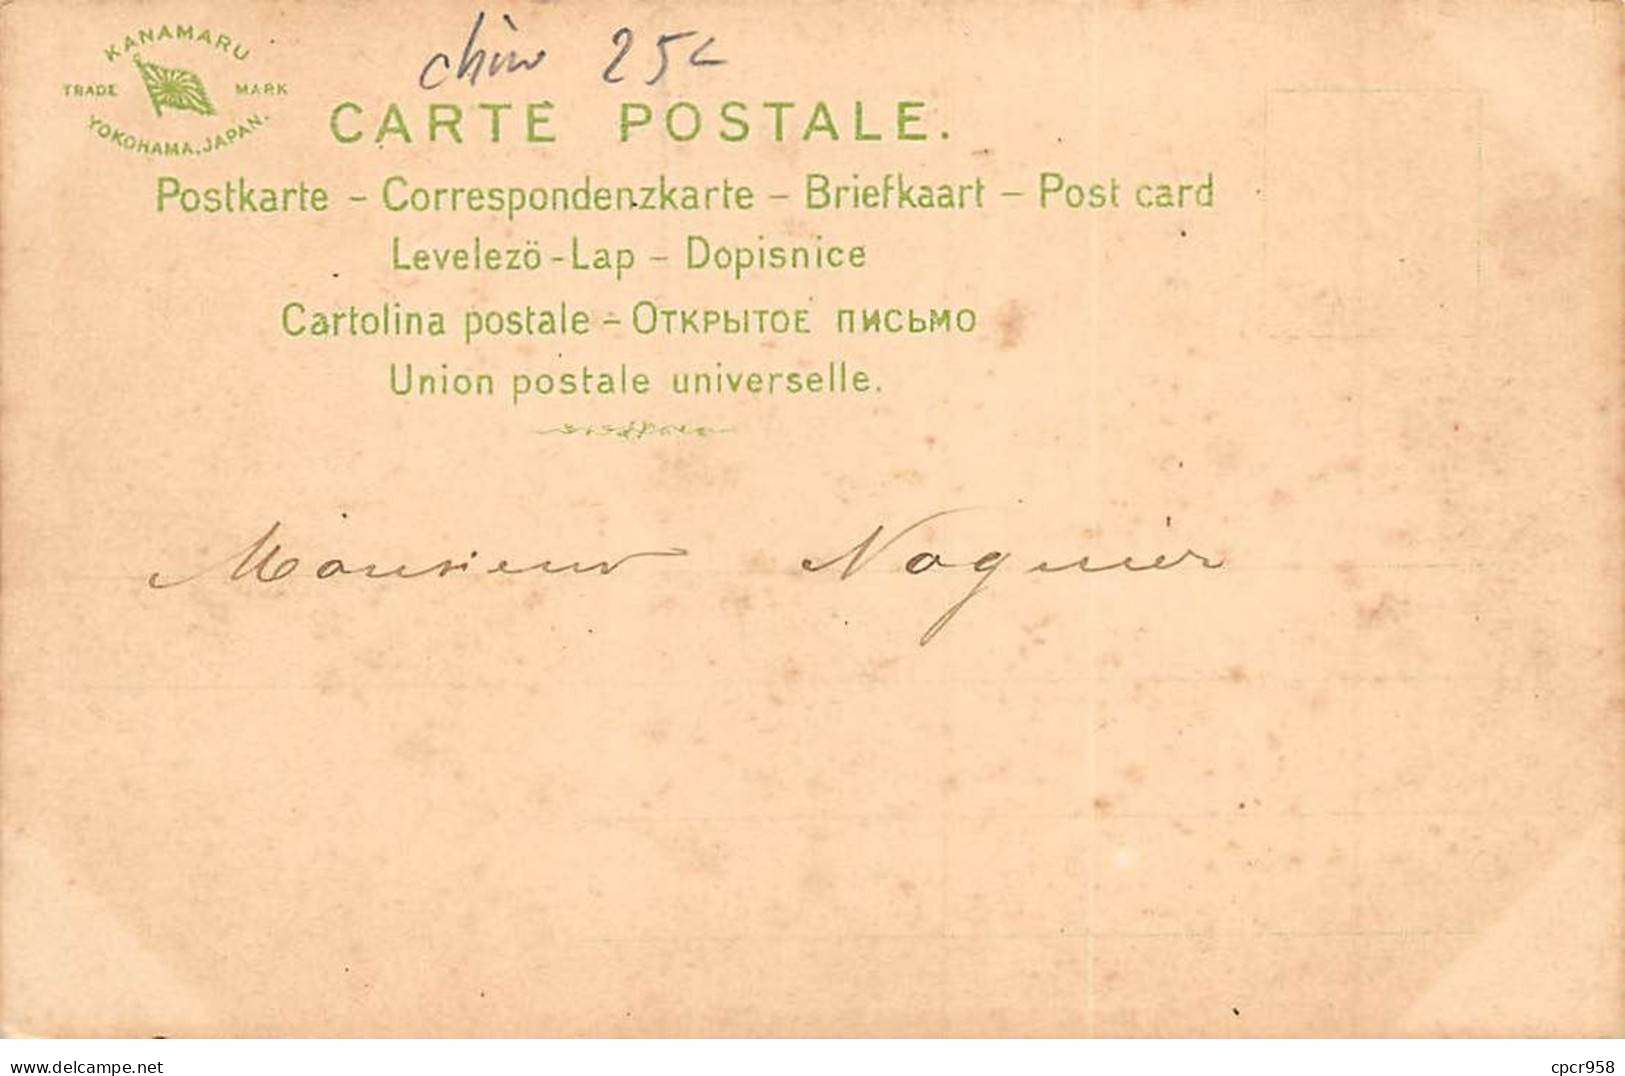 KANAMARU
TRADE MARK
YOKOHAMA, JAPAN.
25c
CARTE POSTALE.
Postkarte – Correspondenzkarte – Briefkaart – Post card
Levelezö - Lap – Dopisnice
Cartolina postale – Открытое письмо
Union postale universelle.
Monsieur Noguier
www.delcampe.net
cpcr958